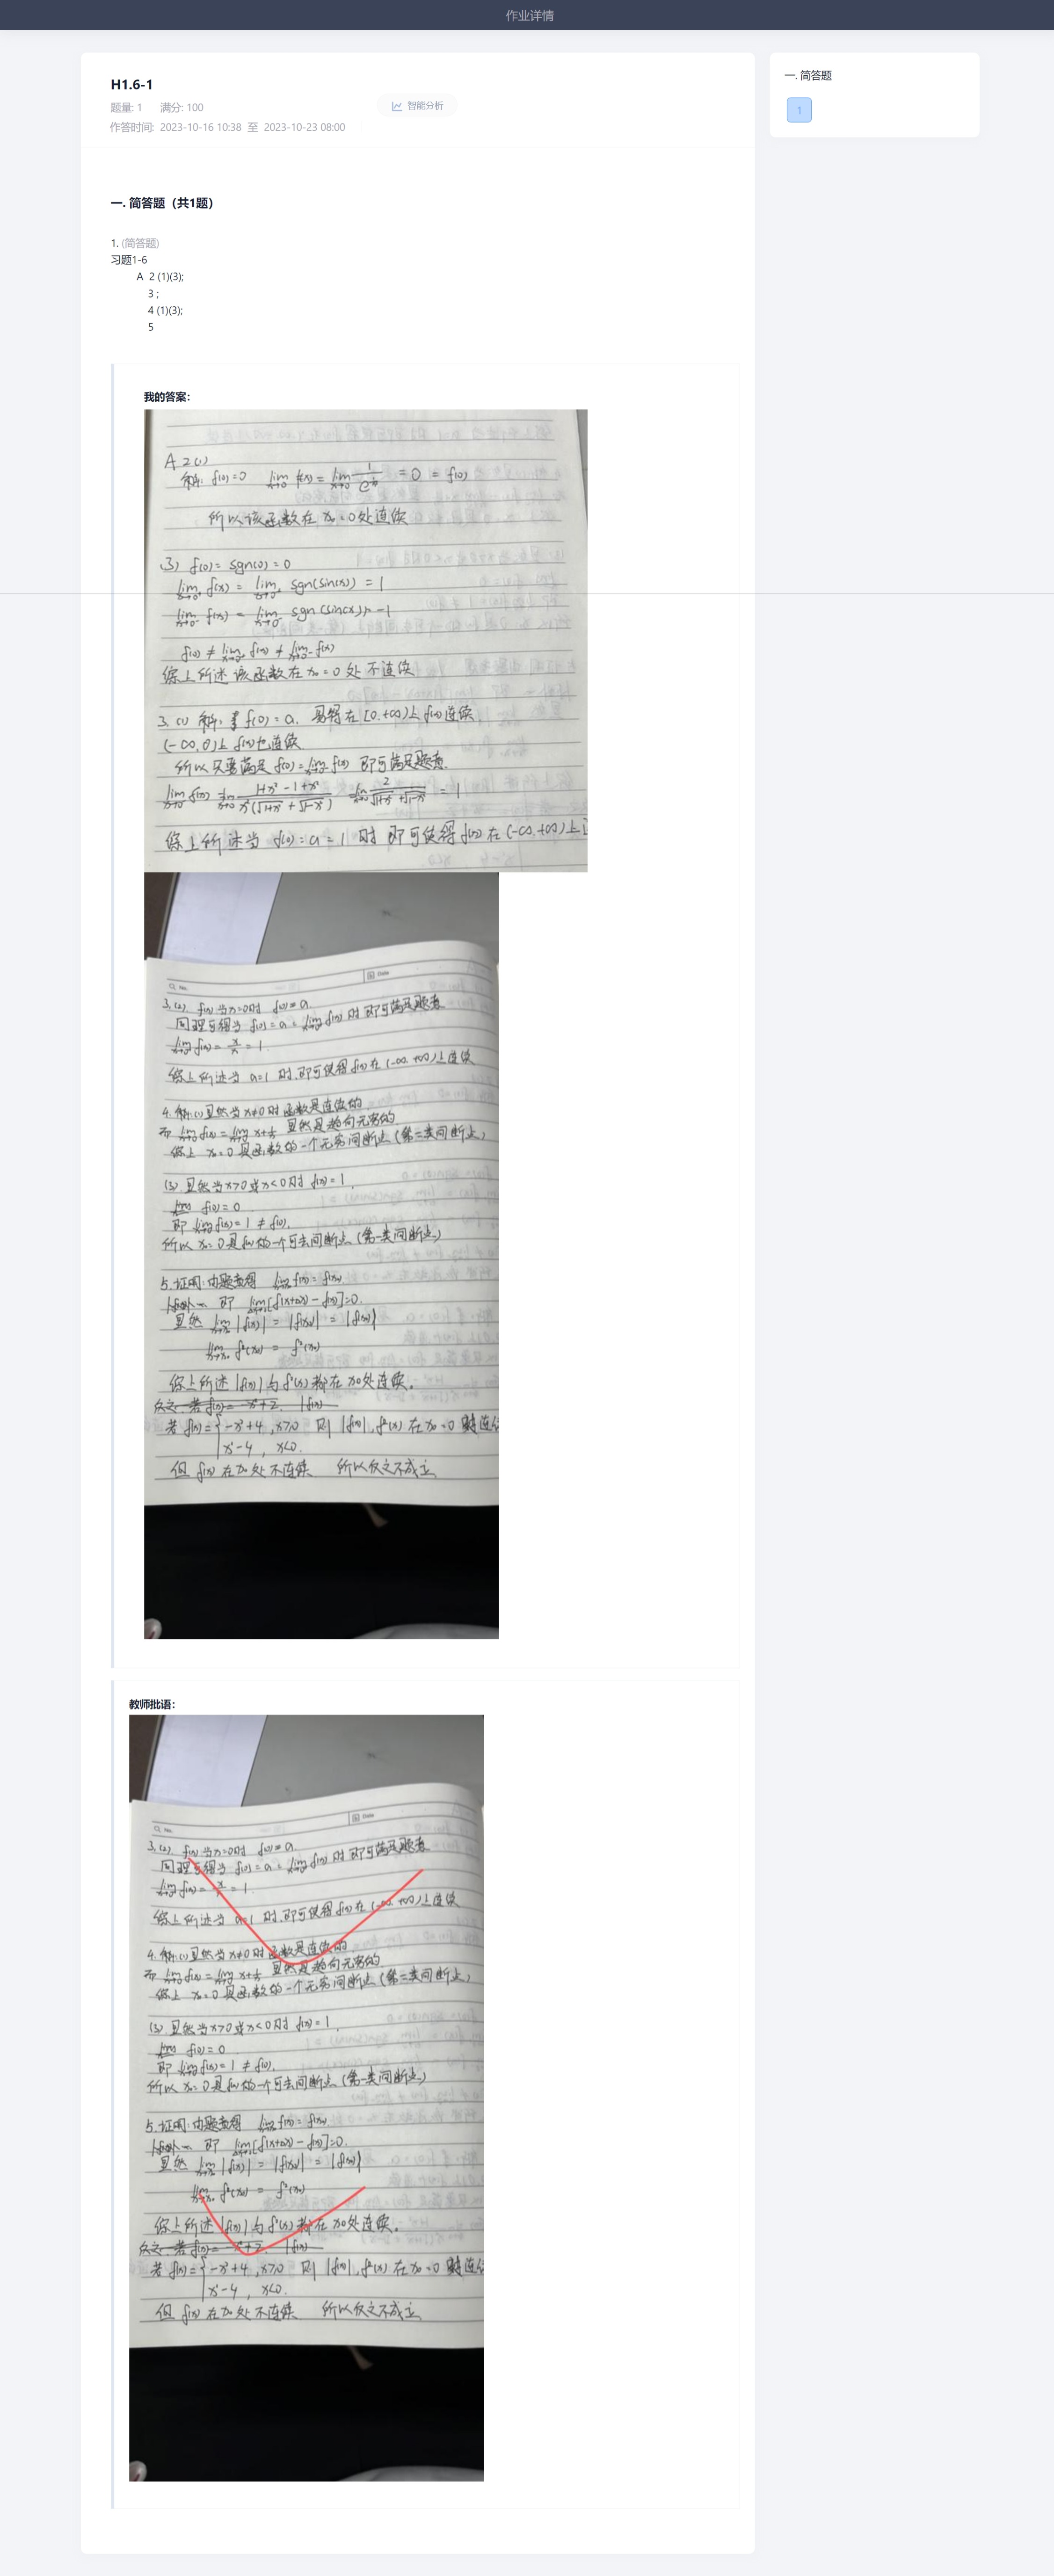 作业详情
H1.6-1
题量: 1 满分: 100
智能分析
作答时间: 2023-10-16 10:38 至 2023-10-23 08:00
一. 简答题
1
一. 简答题（共1题）
1. (简答题)
习题1-6
A 2 (1)(3);
3 ;
4 (1)(3);
5
我的答案：
A 2(1)
解: f(0)=0 lim x→0 f(x) = lim x→0 = 0 = f(0)
所以该函数在 x₀=0处连续
(3) f(0)= sgn(0)=0
lim x→0⁺ f(x) = lim x→0⁺ sgn(sin(x)) = 1
lim x→0⁻ f(x) = lim x→0⁻ sgn(sin(x)) = -1
f(0) ≠ lim x→0⁺ f(x) ≠ lim x→0⁻ f(x)
综上所述 该函数在 x₀=0 处 不连续
3. (1) 解: f(0)=a. 易得在 [0,+∞)上 f(x)连续
(-∞,0)上 f(x)也连续
所以只要满足 f(0)=lim f(x) 即可满足题意.
lim x→0⁻ f(x) = lim x→0 (1+x²-1+x²)/(x²(√1+x² + √1-x²)) lim x→0 2/(√1+x² + √1-x²) = 1
综上所述当 f(0)=a=1 时 即可使得 f(x) 在 (-∞,+∞)上
3.(2) f(x) 当x=0时 f(0)=a.
同理可得当 f(0)=a= lim f(x) 时 即可满足题意
lim f(x) = x/x = 1.
综上所述当 a=1 时,即可使得 f(x) 在 (-∞,+∞)上连续
4. 解.(1) 显然当 x≠0 时 函数是连续的
而 lim x→0 f(x) = lim x→0 x+1/x 显然是趋向无穷的
综上 x₀=0 是函数的一个无穷间断点 (第二类间断点)
(3) 显然当x>0 或 x<0时 f(x)=1.
f(0)=0
即 lim x→0 f(x)=1 ≠ f(0).
所以 x₀=0是f(x)的一个可去间断点 (第一类间断点)
5.证明: 由题意得 lim f(x)=f(x₀)
即 lim [f(x+Δx)-f(x)]=0.
显然 lim x→x₀ |f(x)| = |f(x₀)| = |f(x₀)|
lim x→x₀ f²(x) = f²(x₀)
综上所述 |f(x)| 与 f²(x) 都在 x₀处连续.
反之.若 f(x)= -x²+2. |f(x)
若 f(x)= { -x²+4 , x>0 则 |f(x)|, f²(x) 在 x₀=0 连续
x²-4 , x<0.
但 f(x) 在 x₀ 处 不连续 所以反之不成立
教师批语：
3.(2) f(x) 当x=0时 f(0)=a.
同理可得当 f(0)=a= lim f(x) 时 即可满足题意
lim f(x) = x/x = 1.
综上所述当 a=1 时,即可使得 f(x) 在 (-∞,+∞)上连续
4. 解.(1) 显然当 x≠0 时 函数是连续的
而 lim x→0 f(x) = lim x→0 x+1/x 显然是趋向无穷的
综上 x₀=0 是函数的一个无穷间断点 (第二类间断点)
(3) 显然当x>0 或 x<0时 f(x)=1.
f(0)=0
即 lim x→0 f(x)=1 ≠ f(0).
所以 x₀=0是f(x)的一个可去间断点 (第一类间断点)
5.证明: 由题意得 lim f(x)=f(x₀)
即 lim [f(x+Δx)-f(x)]=0.
显然 lim x→x₀ |f(x)| = |f(x₀)| = |f(x₀)|
lim x→x₀ f²(x) = f²(x₀)
综上所述 |f(x)| 与 f²(x) 都在 x₀处连续.
反之.若 f(x)= -x²+2. |f(x)
若 f(x)= { -x²+4 , x>0 则 |f(x)|, f²(x) 在 x₀=0 连续
x²-4 , x<0.
但 f(x) 在 x₀ 处 不连续 所以反之不成立